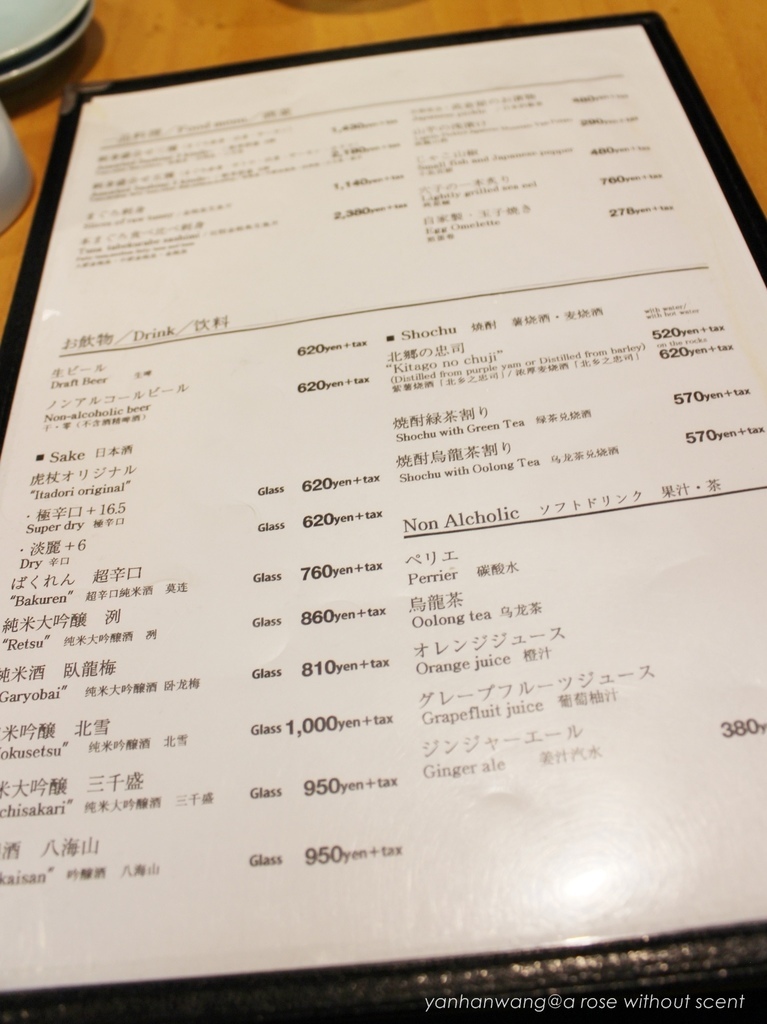 1,140yen+tax
2,380yen+tax
480yen+tax
290yen+tax
じゃこ山椒
Small fish and Japanese pepper
480yen+tax
穴子の一本炙り
Lightly grilled sea eel
760yen+tax
自家製・玉子焼き
Egg Omelette
278yen+tax
お飲物／Drink／饮料
生ビール
Draft Beer 生啤
620yen+tax
ノンアルコールビール
Non-alcoholic beer
620yen+tax
■ Sake 日本酒
虎杖オリジナル
"Itadori original"
・極辛口＋16.5
Super dry 極辛口
Glass 620yen+tax
・淡麗＋6
Dry 辛口
Glass 620yen+tax
ばくれん 超辛口
"Bakuren" 超辛口純米酒 莫连
Glass 760yen+tax
純米大吟醸 洌
"Retsu" 純米大吟醸酒 洌
Glass 860yen+tax
純米酒 臥龍梅
Garyobai" 純米大吟醸酒 卧龙梅
Glass 810yen+tax
米吟醸 北雪
okusetsu" 纯米吟醸酒 北雪
Glass 1,000yen+tax
米大吟醸 三千盛
chisakari" 纯米大吟醸酒 三千盛
Glass 950yen+tax
酒 八海山
kaisan" 吟醸酒 八海山
Glass 950yen+tax
■ Shochu 焼酎 薯烧酒・麦烧酒
北郷の忠司
"Kitago no chuji"
(Distilled from purple yam or Distilled from barley)
紫薯烧酒「北乡之忠司」/ 浓厚麦烧酒「北乡之忠司」
with water/
with hot water
520yen+tax
on the rocks
620yen+tax
焼酎緑茶割り
Shochu with Green Tea 绿茶兑烧酒
570yen+tax
焼酎烏龍茶割り
Shochu with Oolong Tea 乌龙茶兑烧酒
570yen+tax
Non Alcholic ソフトドリンク 果汁・茶
ペリエ
Perrier 碳酸水
烏龍茶
Oolong tea 乌龙茶
オレンジジュース
Orange juice 橙汁
グレープフルーツジュース
Grapefluit juice 葡萄柚汁
ジンジャーエール
Ginger ale 姜汁汽水
380y
yanhanwang@a rose without scent